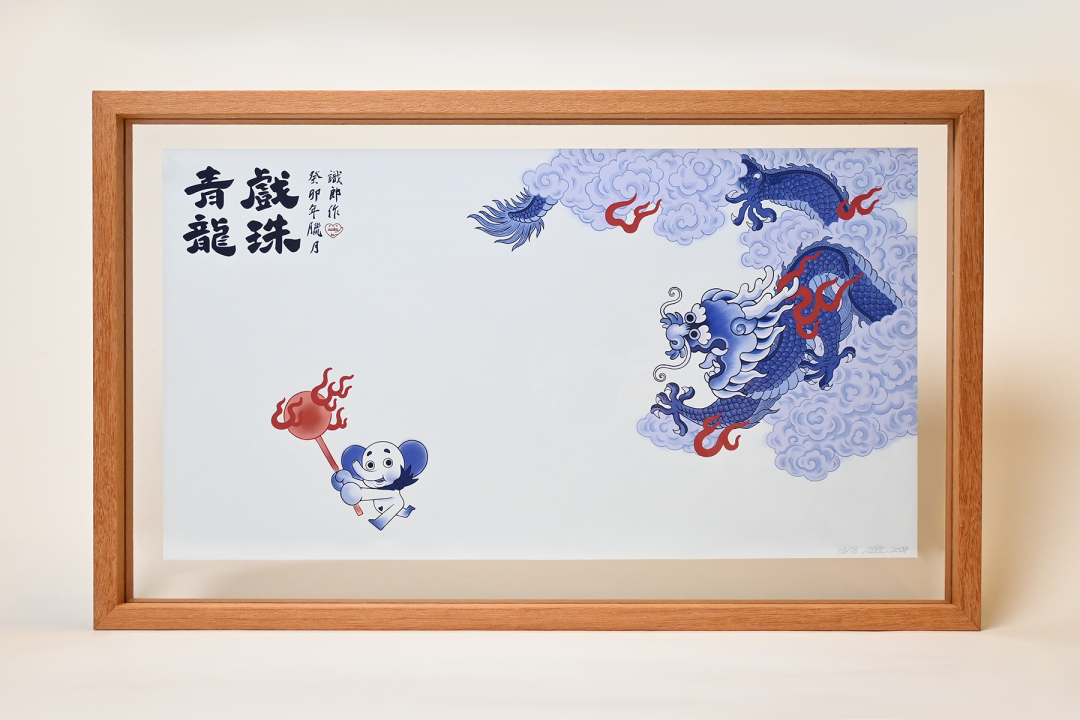 青龍
戲珠
癸卯年臘月
識郎作